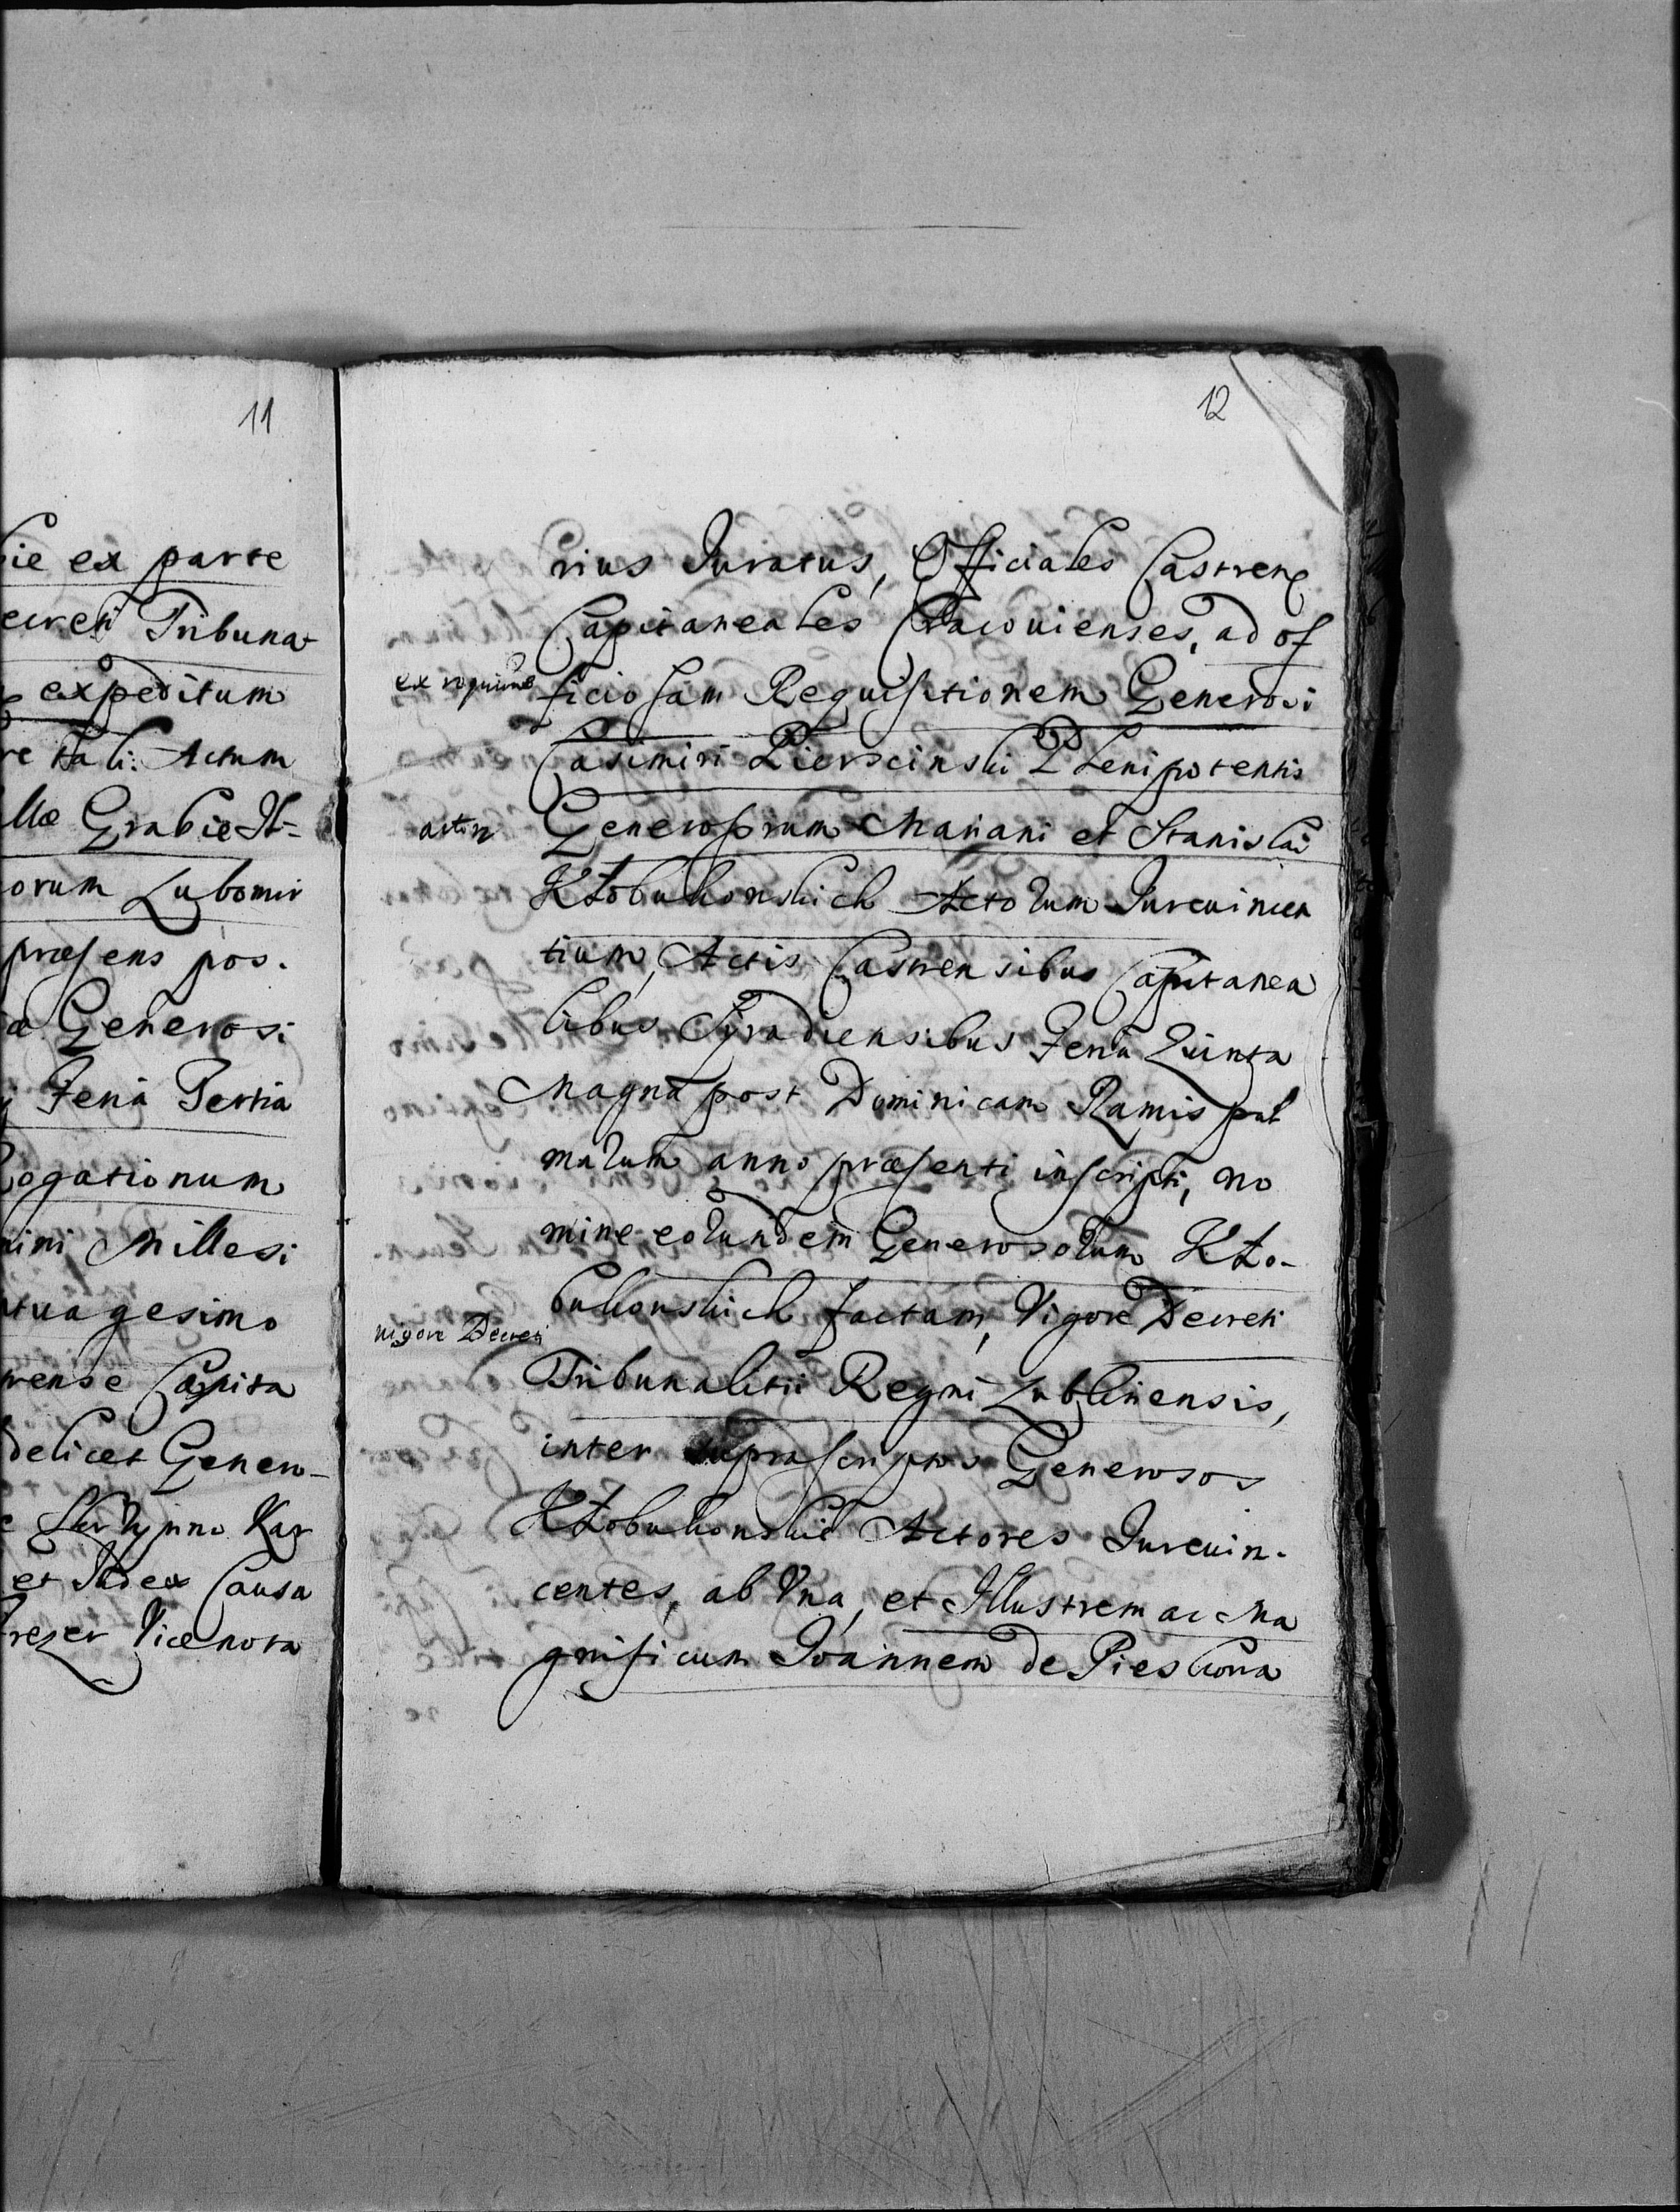 11
ie ex parte
ecreti Tribuna
expeditum
re tali: Actum
llæ Grabie It-
orum Lubomir
præsens pos.
æ Generosi
Feria Tertia
ogationum
imi Millesi
tuagesimo
rense Capita
delicet Genero-
Kar
et Judex Causa
Vicenota
12
rius Juratus, Officiales Castren
Capitaneales Cracouienses, ad of
ficiosam Requisitionem Generosi
Casimiri Pierscinski Plenipotentis
Generosorum Mariani et Stanislai
Kłobukowskich Actorum Jureuincen
tium, Actis Castrensibus Capitanea
libus Syradiensibus Feria Quinta
Magna post Dominicam Ramis pal
marum anno præsenti inscripti, no
mine eorundem Generosorum Kło-
bukowskich factam, Vigore Decreti
Tribunalitii Regni Lublinensis,
inter suprascriptos Generosos
Kłobukowskie Actores Jureuin-
centes, ab Vna, et Illustrem ac Ma
gnificum Joannem de Pieskowa
actor
vigore Decreti